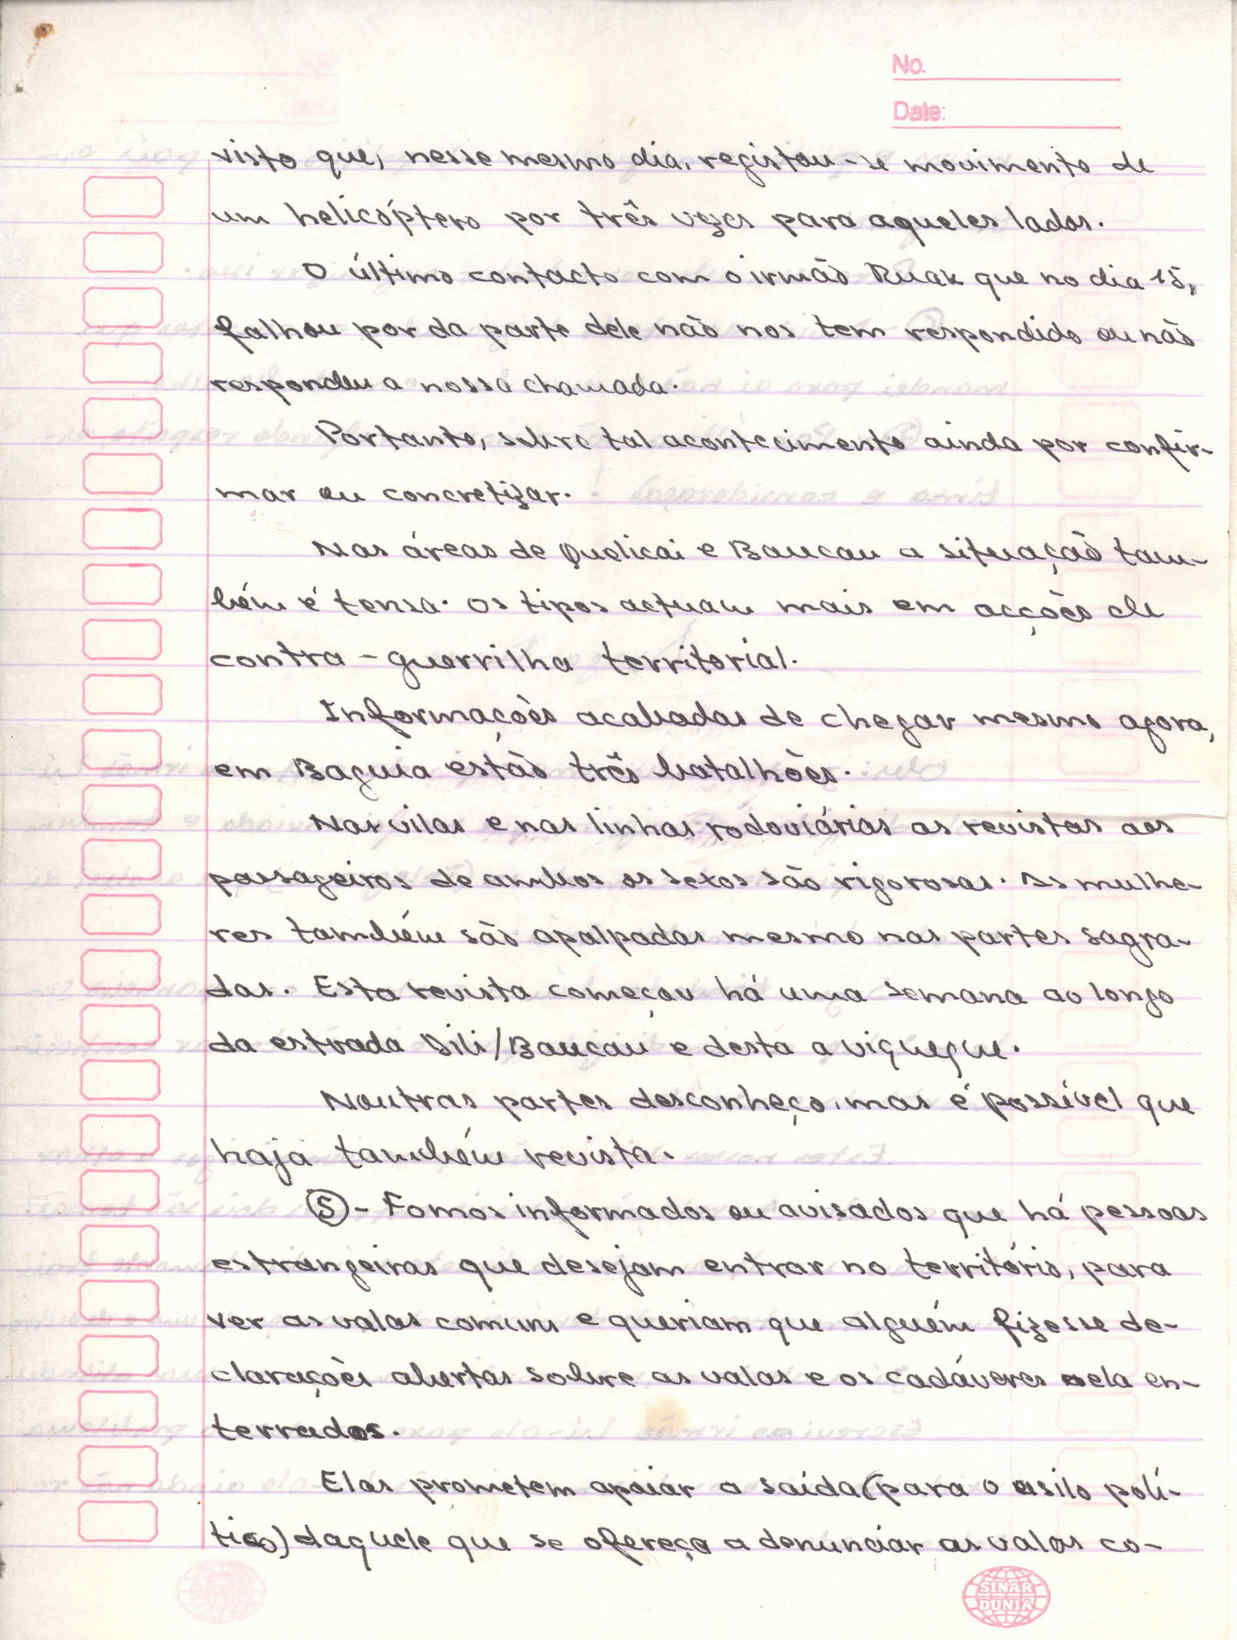 No.
Date:
visto que, nesse mesmo dia, registou-se movimento de
um helicóptero por três vezes para aqueles lados.
O último contacto com o irmão Ruak que no dia 15,
falhou por da parte dele não nos tem respondido ou não
respondeu a nossa chamada.
Portanto, sobre tal acontecimento ainda por confir-
mar ou concretizar.
Nas áreas de Quelicai e Baucau a situação tam-
bém é tensa. Os tipos actuam mais em acções de
contra-guerrilha territorial.
Informações acabadas de chegar mesmo agora,
em Baguia estão três batalhões.
Nas vilas e nas linhas rodoviárias as revistas aos
passageiros de ambos os sexos são rigorosas. As mulhe-
res também são apalpadas mesmo nas partes sagra-
das. Esta revista começou há uma semana ao longo
da estrada Dili/Baucau e desta a viqueque.
Noutras partes desconheço, mas é possível que
haja também revista.
(5) - Fomos informados ou avisados que há pessoas
estrangeiras que desejam entrar no território, para
ver as valas comuns e queriam que alguém fizesse de-
clarações abertas sobre as valas e os cadáveres nela en-
terrados.
Elas prometem apoiar a saída (para o asilo polí-
tico) daquele que se ofereça a denunciar as valas co-
SINAR
DUNIA